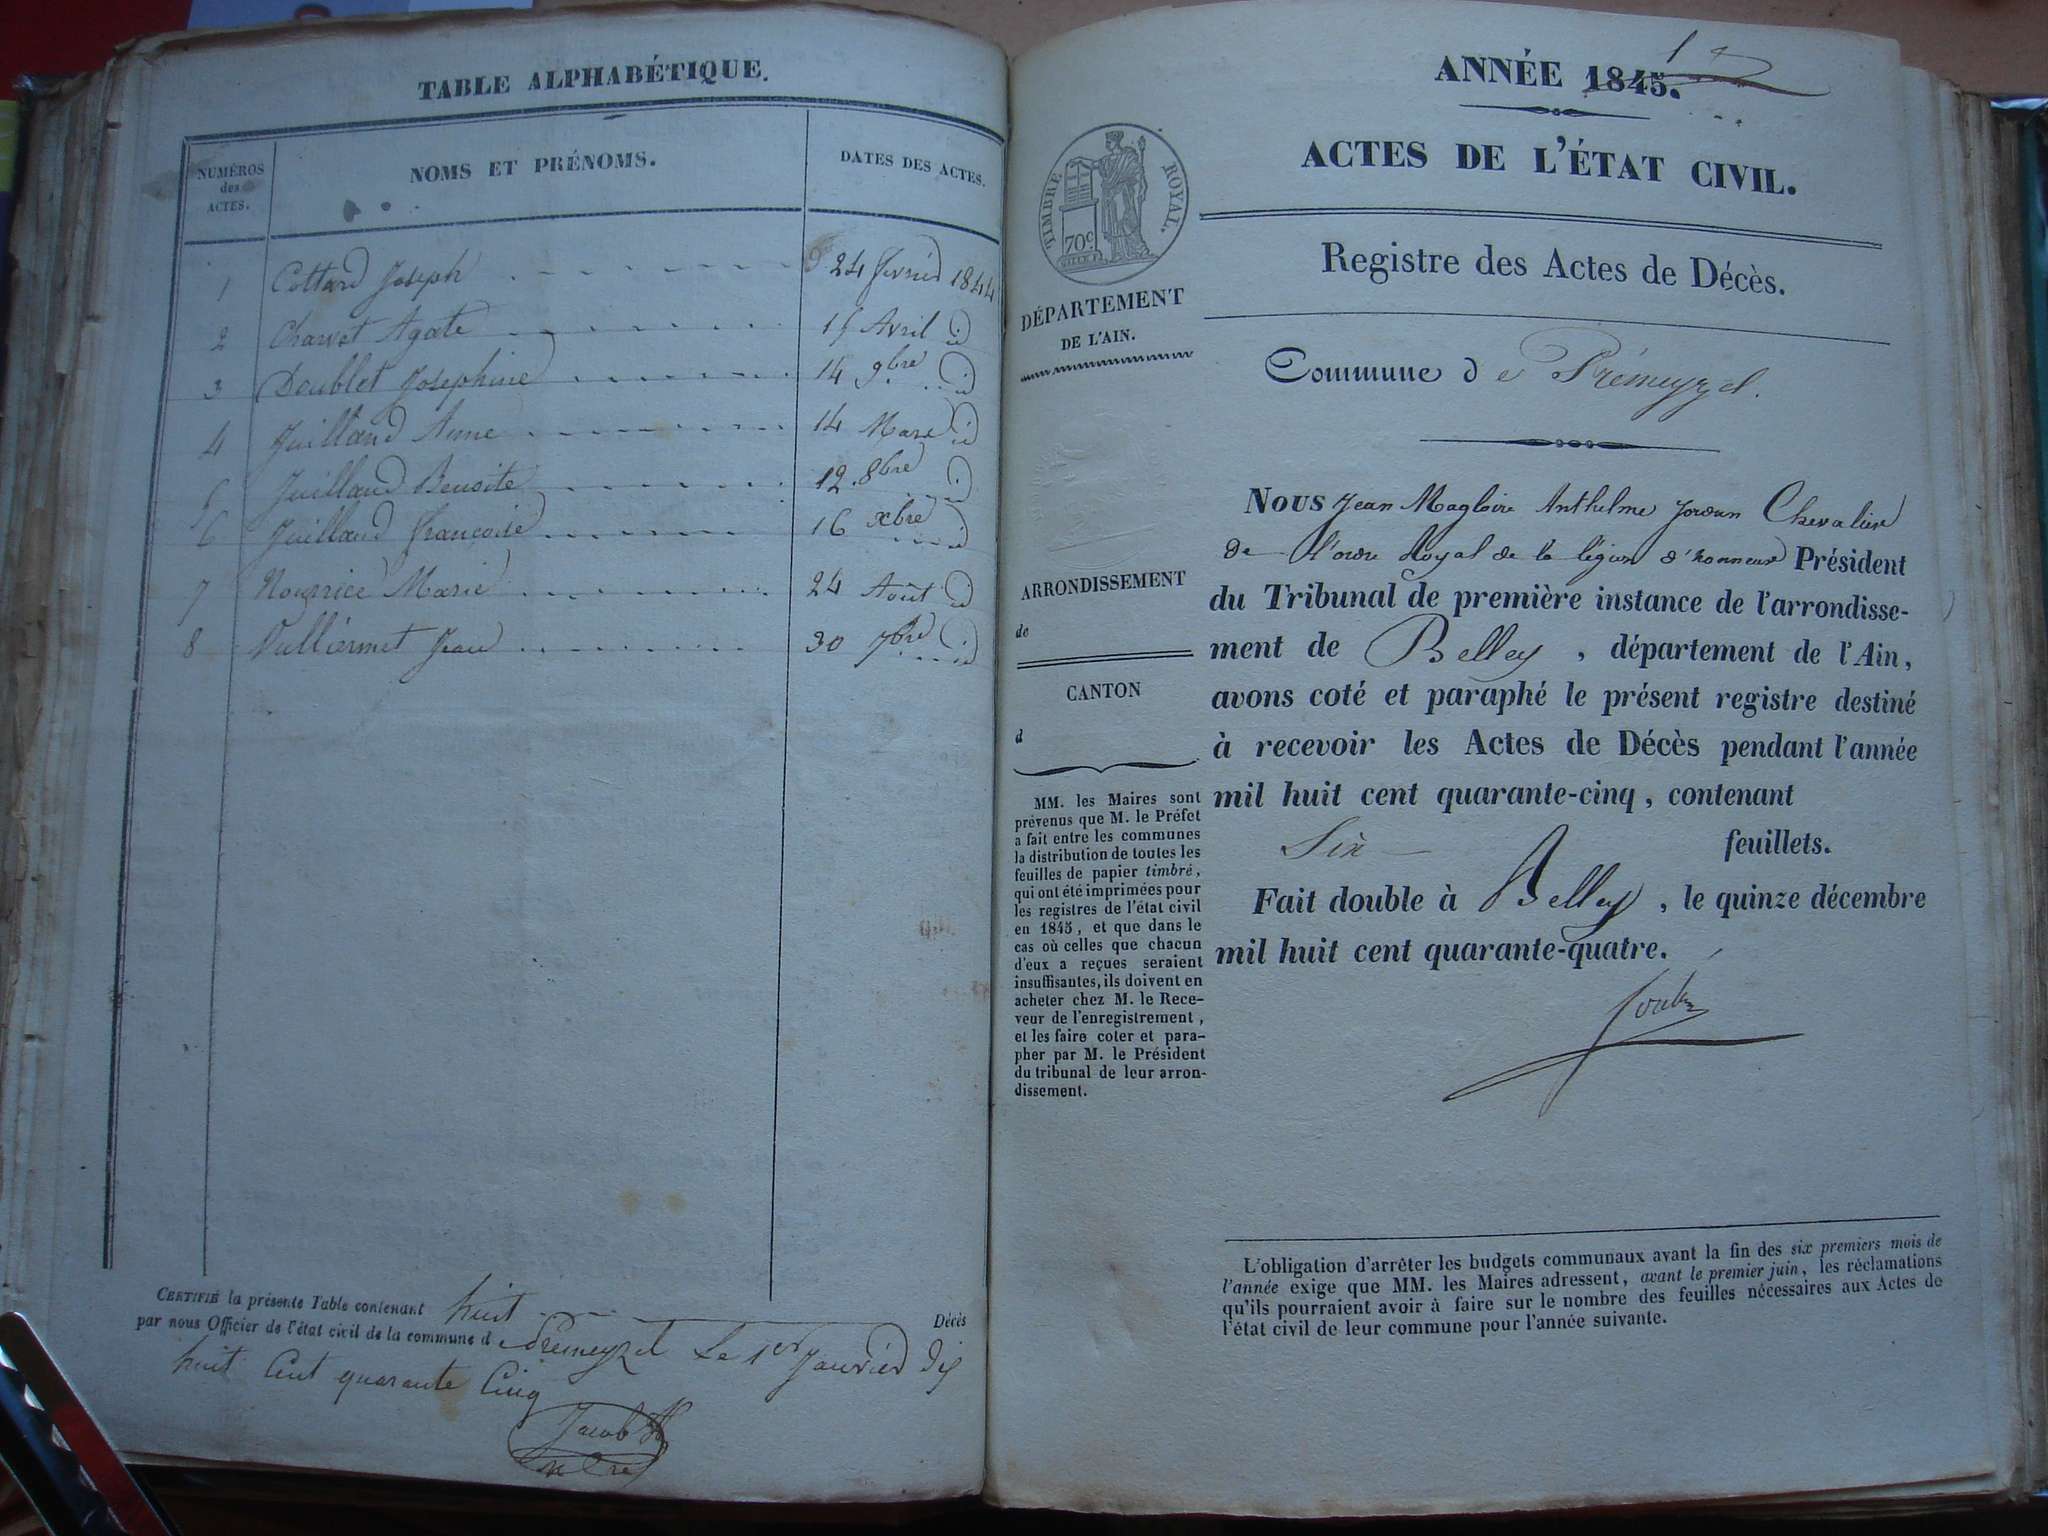 TABLE ALPHABÉTIQUE.
NUMÉROS des ACTES. NOMS ET PRÉNOMS. DATES DES ACTES.
1 Cottard Joseph 24 février 1844
2 Charvet Agate 15 Avril id
3 Doublet Josephine 14 9bre id
4 Juilland Anne 14 Mars id
5 Juilland Benoite 12 8bre id
6 Juilland françoise 16 xbre id
7 Nourrice Marie 24 Août id
8 Vulliermet Jean 30 7bre id
CERTIFIÉ la présente Table contenant huit Décès
par nous Officier de l'état civil de la commune de Prémeyzel Le 1er Janvier dix
huit Cent quarante Cinq
Jacob
ANNÉE 1845.
ACTES DE L'ÉTAT CIVIL.
Registre des Actes de Décès.
Commune de Prémeyzel.
TIMBRE ROYAL.
70c
DÉPARTEMENT
DE L'AIN.
ARRONDISSEMENT
de
CANTON
d
MM. les Maires sont
prévenus que M. le Préfet
a fait entre les communes
la distribution de toutes les
feuilles de papier timbré,
qui ont été imprimées pour
les registres de l'état civil
en 1845, et que dans le
cas où celles que chacun
d'eux a reçues seraient
insuffisantes, ils doivent en
acheter chez M. le Rece-
veur de l'enregistrement,
et les faire coter et para-
pher par M. le Président
du tribunal de leur arron-
dissement.
NOUS Jean Magloire Anthelme Jordan Chevalier
de l'ordre Royal de la légion d'honneur Président
du Tribunal de première instance de l'arrondisse-
ment de Belley, département de l'Ain,
avons coté et paraphé le présent registre destiné
à recevoir les Actes de Décès pendant l'année
mil huit cent quarante-cinq, contenant
Six feuillets.
Fait double à Belley, le quinze décembre
mil huit cent quarante-quatre.
L'obligation d'arrêter les budgets communaux avant la fin des six premiers mois de
l'année exige que MM. les Maires adressent, avant le premier juin, les réclamations
qu'ils pourraient avoir à faire sur le nombre des feuilles nécessaires aux Actes de
l'état civil de leur commune pour l'année suivante.